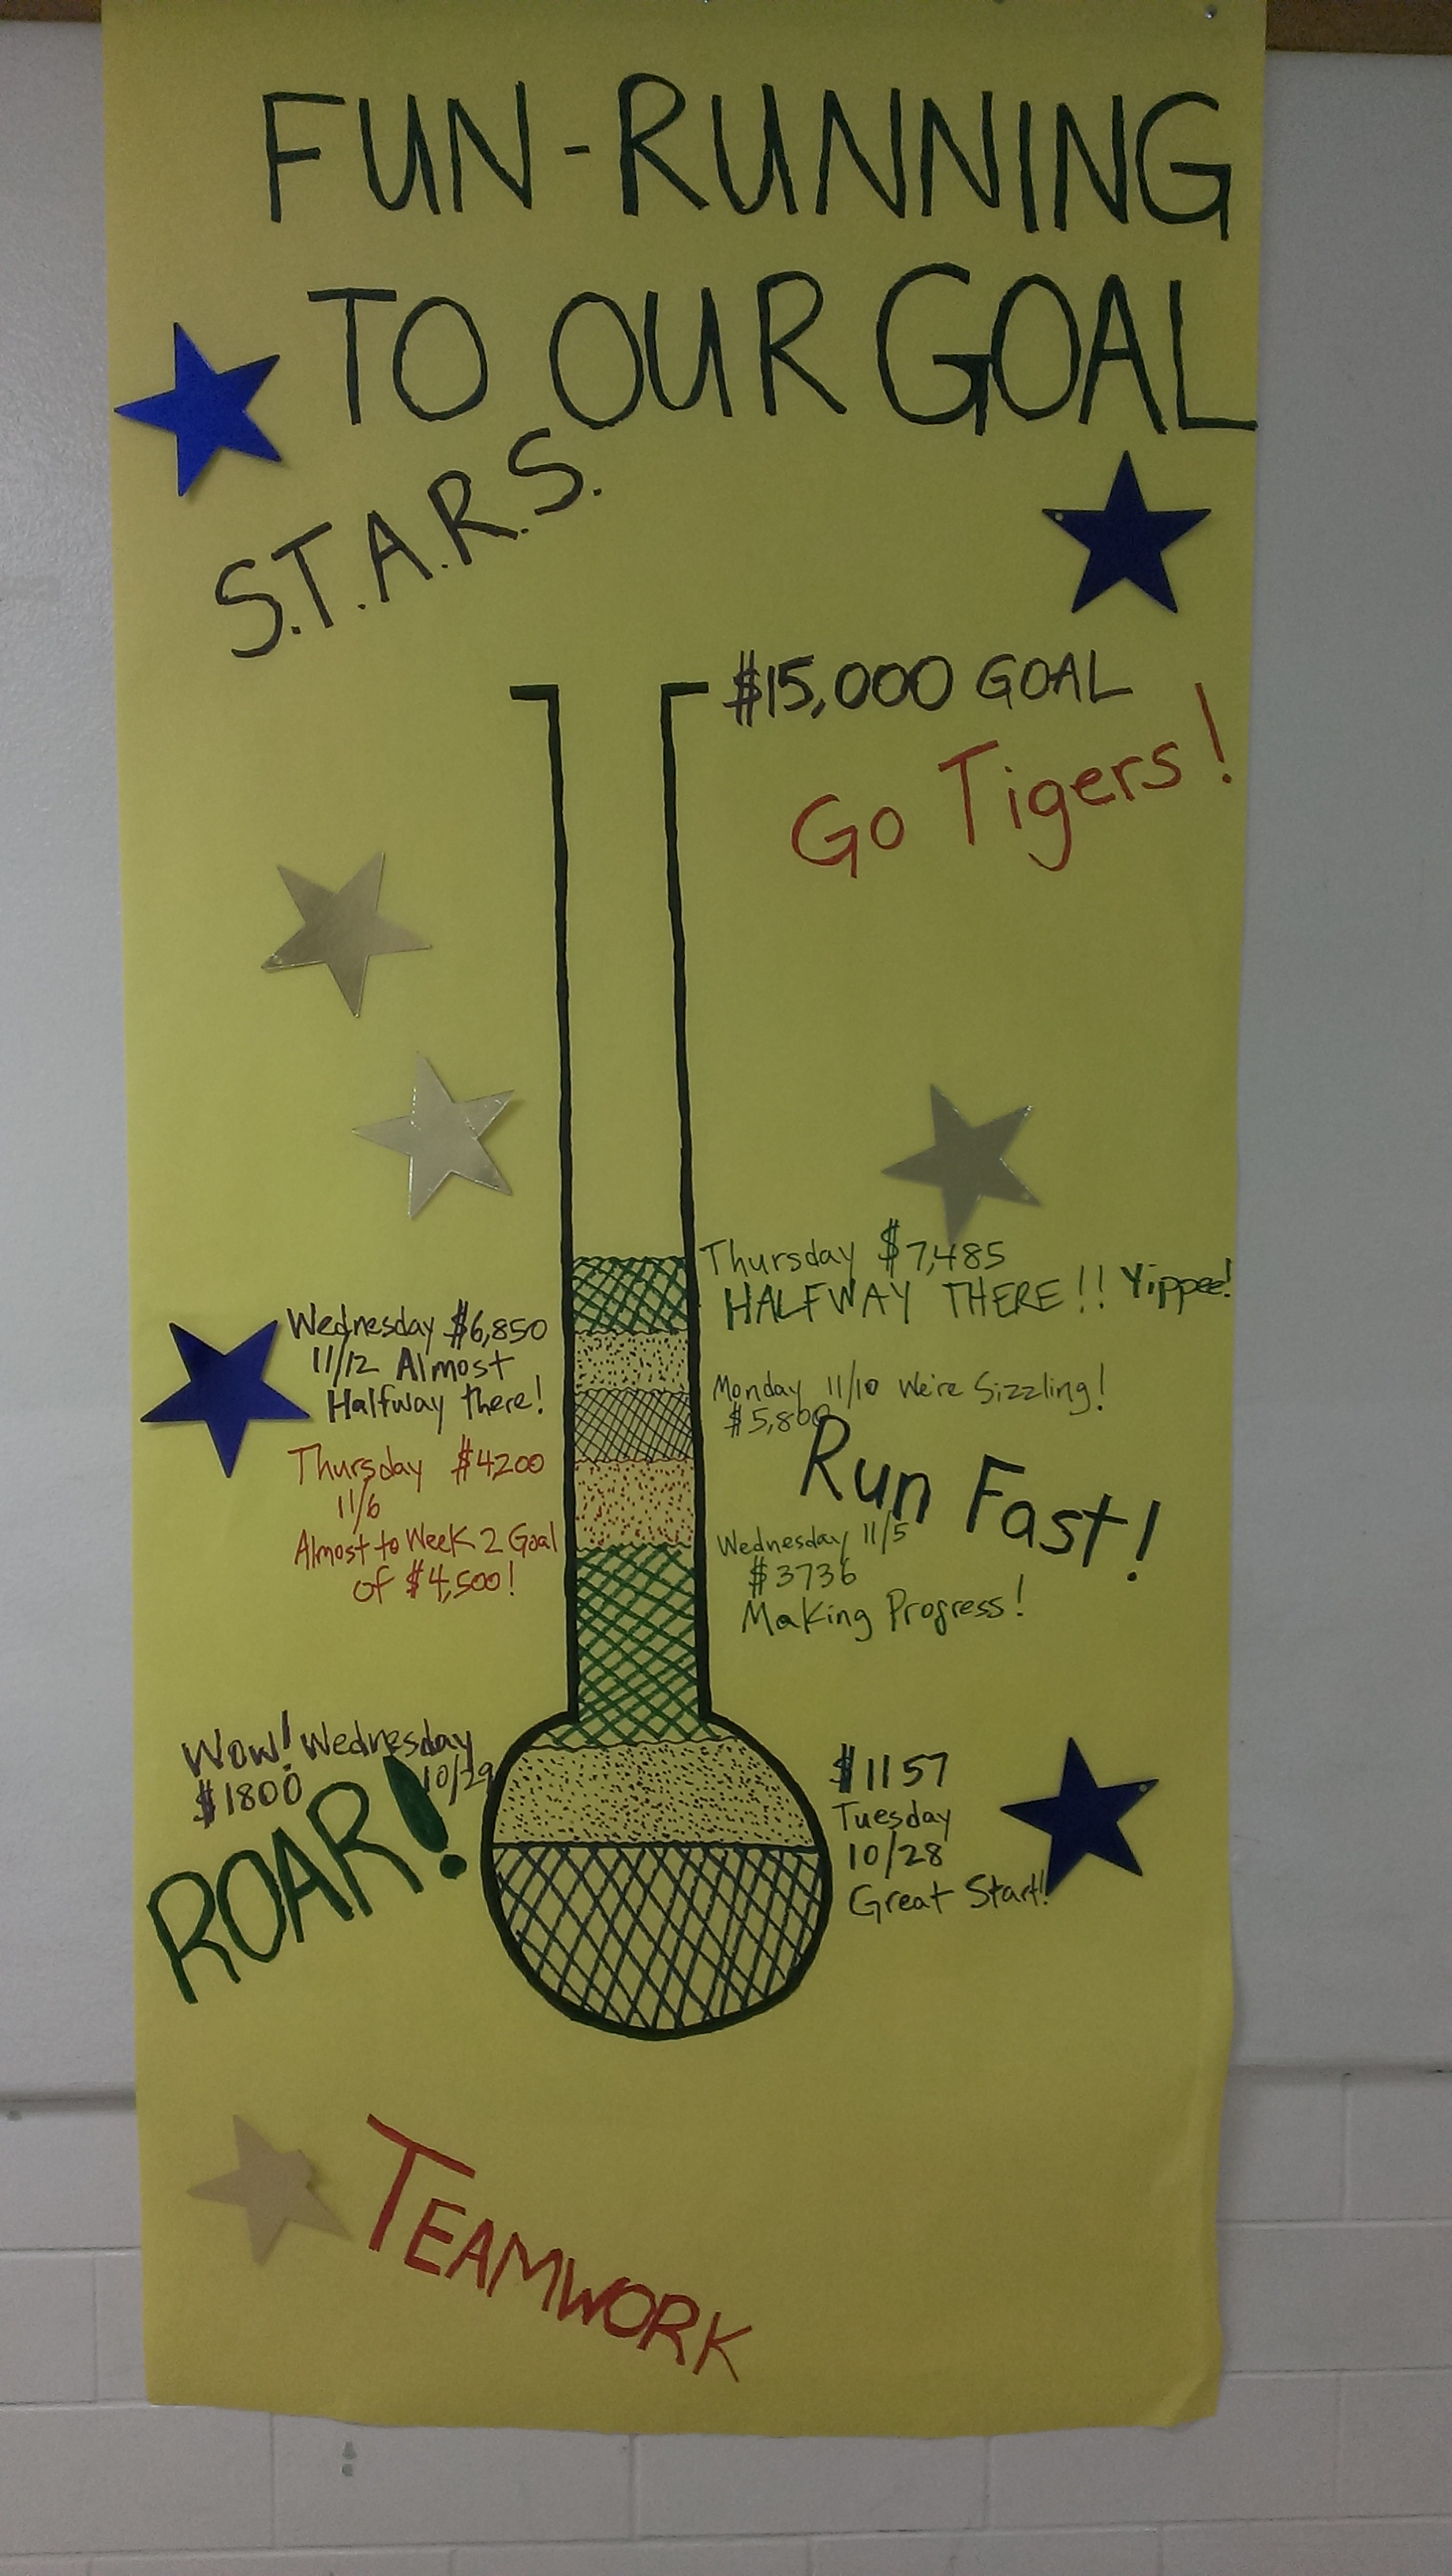 FUN-RUNNING
TO OUR GOAL
S.T.A.R.S.
$15,000 GOAL
Go Tigers!
Thursday $7,485
HALFWAY THERE!! Yippee!
Wednesday $6,850
11/12 Almost
Halfway there!
Monday 11/10 We're Sizzling!
$5,800
Run Fast!
Thursday $4200
11/6
Almost to Week 2 Goal
of $4,500!
Wednesday 11/5
$3736
Making Progress!
Wow! Wednesday
$1800 10/29
ROAR!
$1157
Tuesday
10/28
Great Start!
TEAMWORK